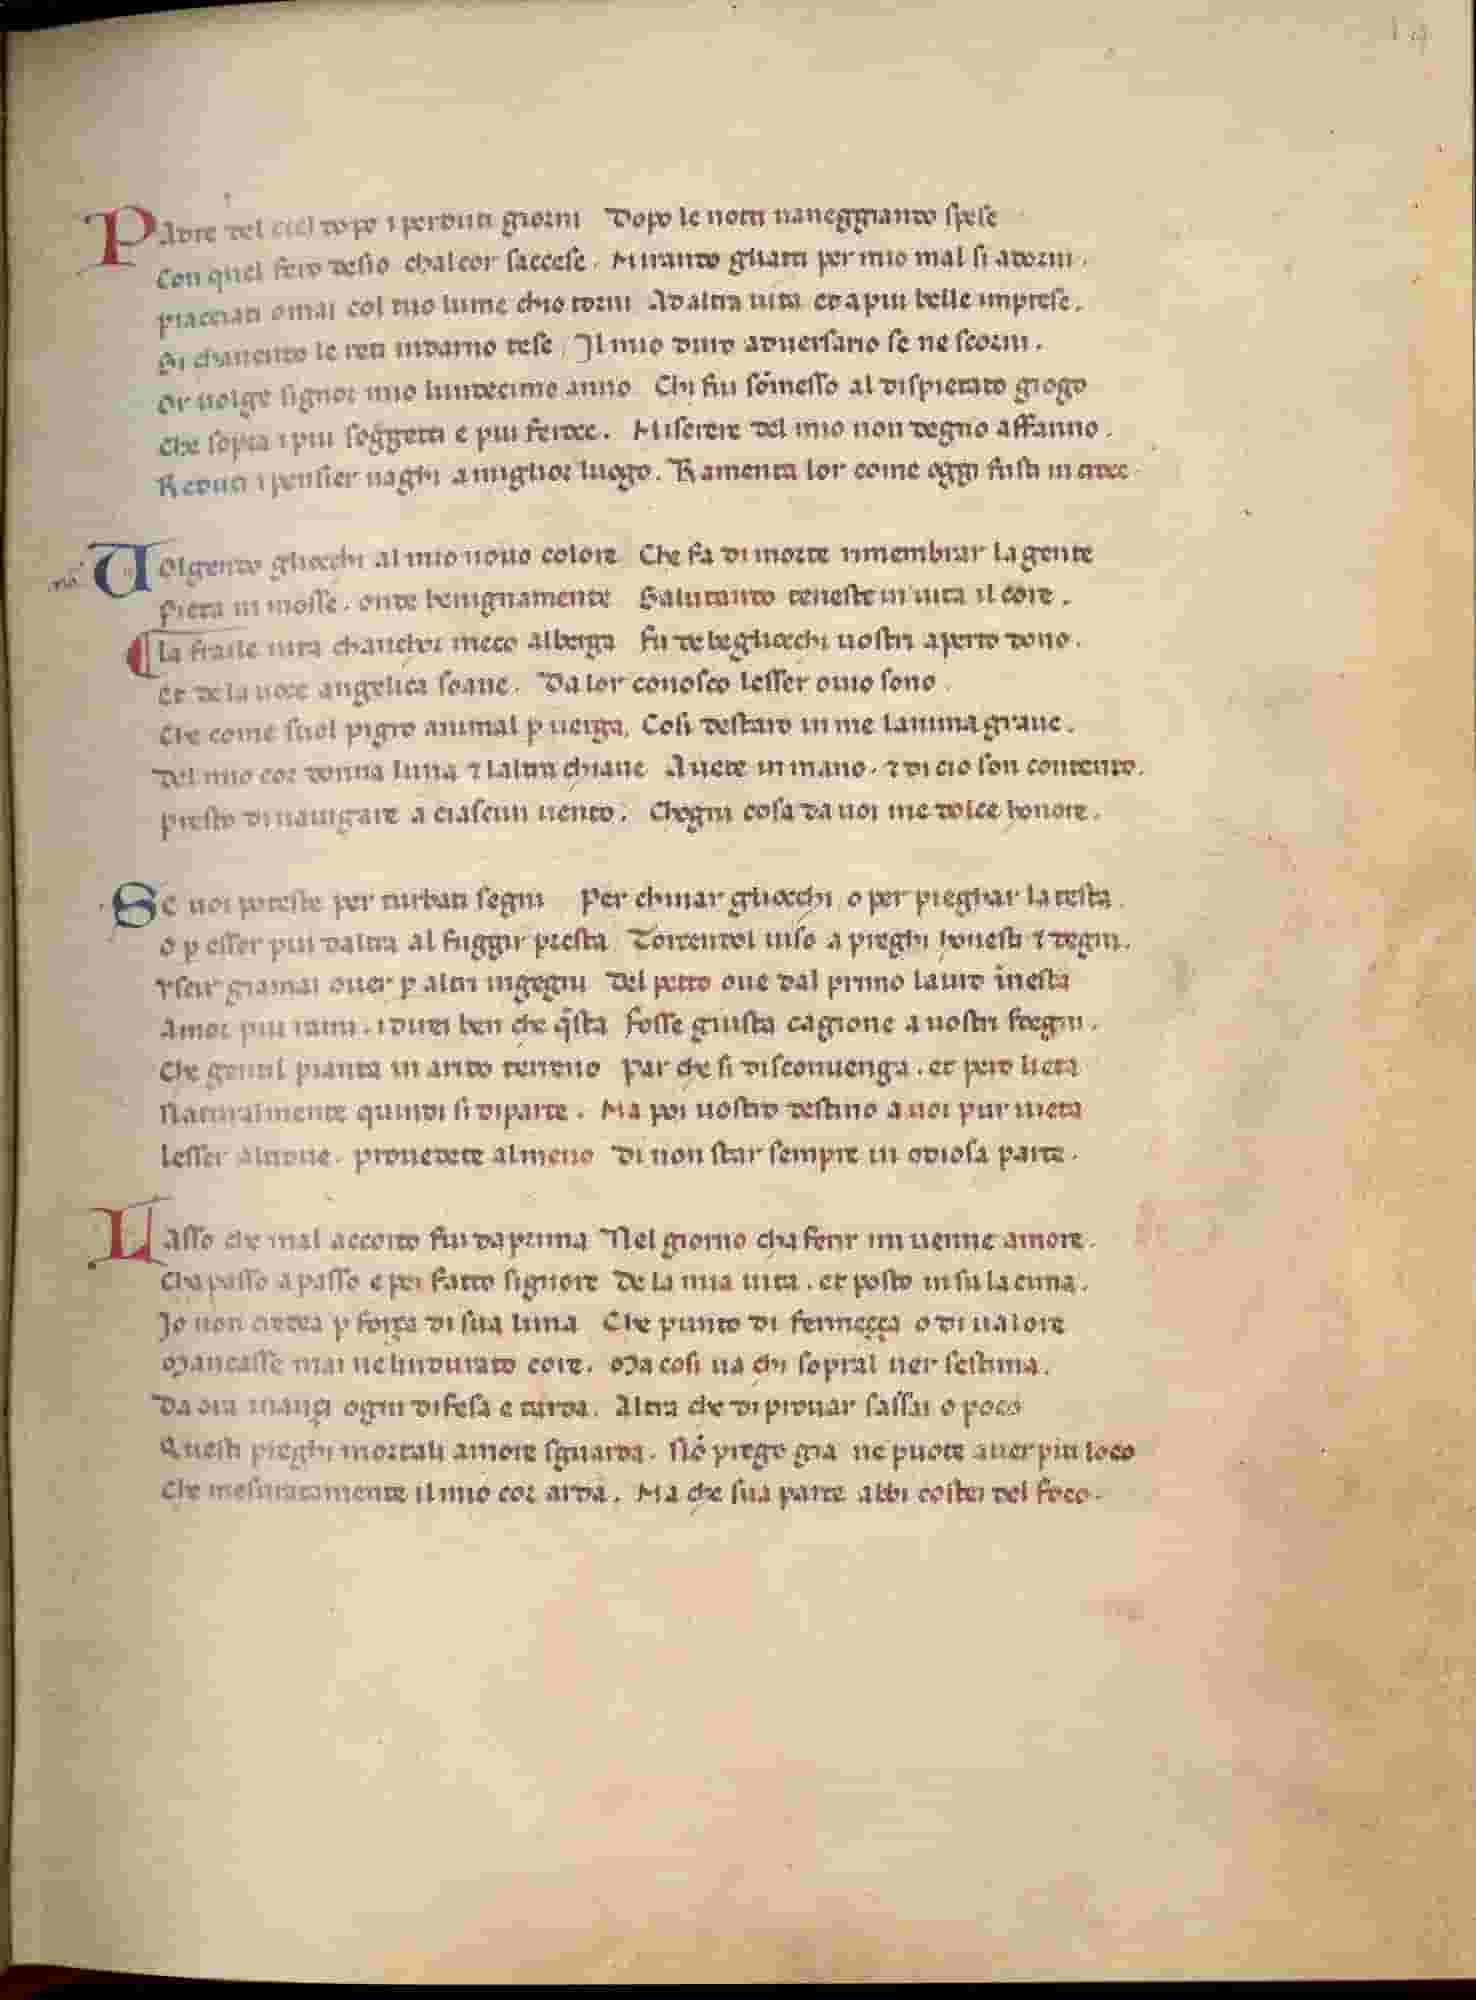 14
PAdre del ciel dopo i perduti giorni Dopo le notti uaneggiando spese
Con quel fero desio chalcor saccese. Mirando gliatti per mio mal si adorni.
piacciati omai col tuo lume chio torni Adaltra uita eda piu belle imprese.
Si chauendo le reti indarno tese Il mio duro aduersario se ne scorni.
Or uolge signor mio lundecimo anno Chi fui sōmesso al dispietato giogo
Che sopra i piu soggetti e piu feroce. Miserere del mio non degno affanno.
Reduci i pensier uaghi a miglior luogo. Ramenta lor come oggi fusti in croce.
UOlgendo gliocchi al mio nouo colore Che fa di morte rimembrar la gente
pieta ui mosse. onde benignamente Salutando teneste in uita il core.
La fraile uita chanchor meco alberga fu de begliocchi uostri aperto dono.
Et de la uoce angelica soaue. Da lor conosco lesser ouio sono.
Che come suol pigro animal ꝑ uerga, Cosi destaro in me lanima graue.
Del mio cor donna luna ⁊ laltra chiaue Auete in mano. ⁊ di cio son contento.
presto di nauigare a ciascun uento. Chogni cosa da uoi me dolce honore.
SE uoi poteste per turbati segni Per chinar gliocchi o per pieghar la testa.
o ꝑ esser piu daltra al fuggir presta Torcendol uiso a preghi honesti ⁊ degni.
Vscir giamai ouer ꝑ altri ingegni Del petto oue dal primo lauro īnesta
Amor piu rami. i direi ben che q̄sta fosse giusta cagione a uostri sdegni.
Che gentil pianta in arido terreno par che si disconuenga. et pero lieta
Naturalmente quindi si diparte. Ma poi uostro destino a uoi pur uieta
Lesser altroue. prouedete almeno Di non star sempre in odiosa parte.
LAsso che mal accorto fui daprima Nel giorno cha ferir mi uenne amore.
Cha passo a passo e poi fatto signore De la mia uita. et posto in su la cima.
Io non credea ꝑ força di sua lima Che punto di fermeçça o di ualore
Mancasse mai nelindurato core. Ma cosi ua chi sopral uer sestima.
Da ora inançi ogni difesa e tarda. Altra che di prouar sassai o poco
Questi preghi mortali amore sguarda. Nō prego gia ne puote auer piu loco
Che mesuratamente il mio cor arda. Ma che sua parte abbi costei del foco.